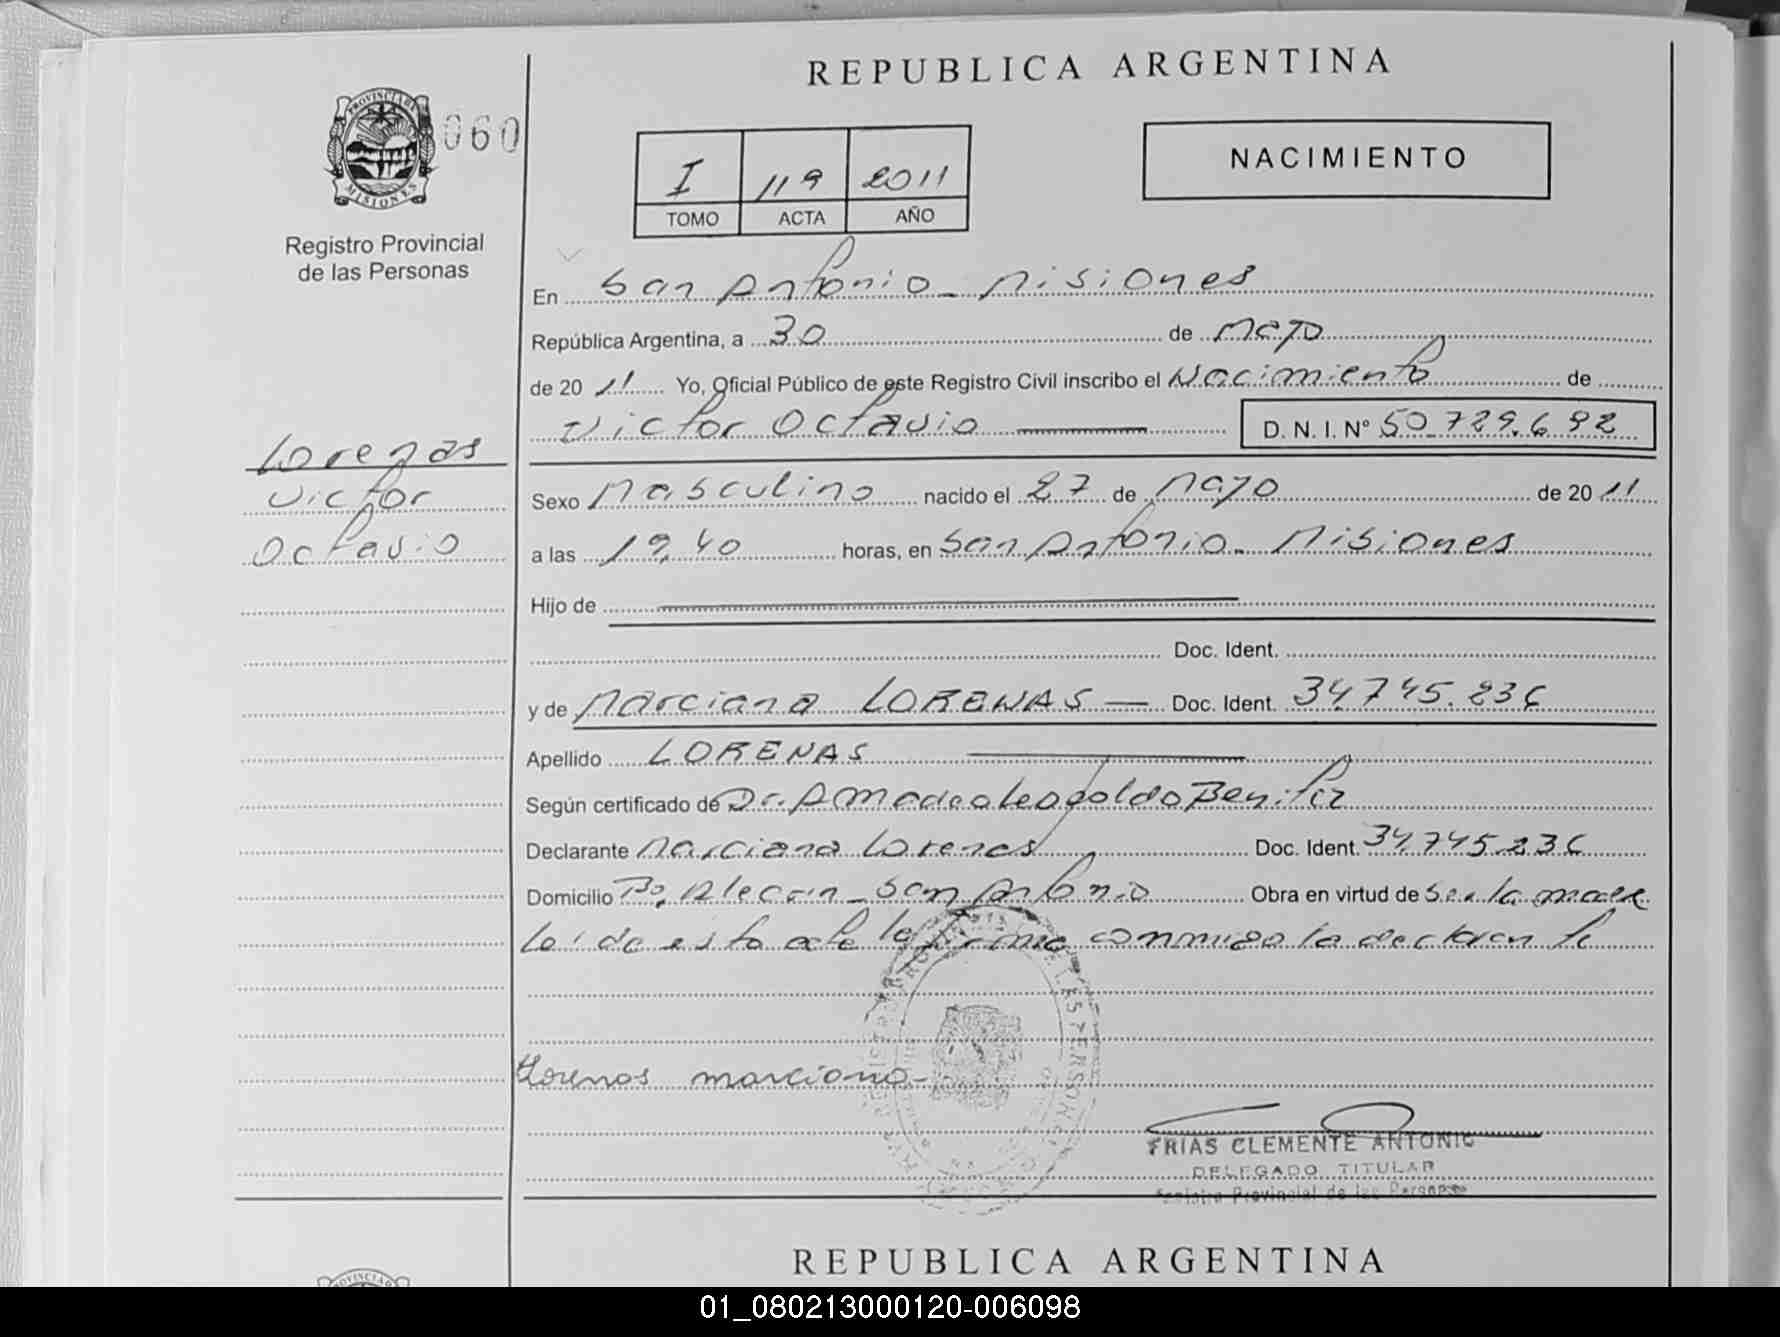 REPUBLICA ARGENTINA
PROVINCIA DE MISIONES
060
Registro Provincial
de las Personas
I 119 2011
TOMO ACTA AÑO
NACIMIENTO
En San Antonio - Misiones
República Argentina, a 30 de Mayo
de 2011 Yo, Oficial Público de este Registro Civil inscribo el Nacimiento de
Victor Octavio D. N. I. Nº 50.729.692
Lorenas
Victor
Octavio
Sexo Masculino nacido el 27 de Mayo de 2011
a las 19,40 horas, en San Antonio - Misiones
Hijo de
Doc. Ident.
y de Marciana LORENAS — Doc. Ident. 34.745.236
Apellido LORENAS
Según certificado de Dr. Amadeo Leopoldo Benitez
Declarante Marciana Lorenas Doc. Ident. 34.745.236
Domicilio Bº. Alecrin - San Antonio Obra en virtud de Ser la madre
Leida esta acta la firma conmigo la declarante
Lorenas marciana-
FRIAS CLEMENTE ANTONIO
DELEGADO TITULAR
Registro Provincial de las Personas
REPUBLICA ARGENTINA
01_080213000120-006098